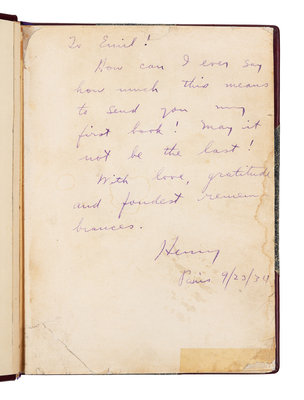 To Emil!
How can I ever say
how much this means
to send you my
first book! May it
not be the last!
With love, gratitude
and fondest remem-
brances.
Henry
Paris 9/23/34